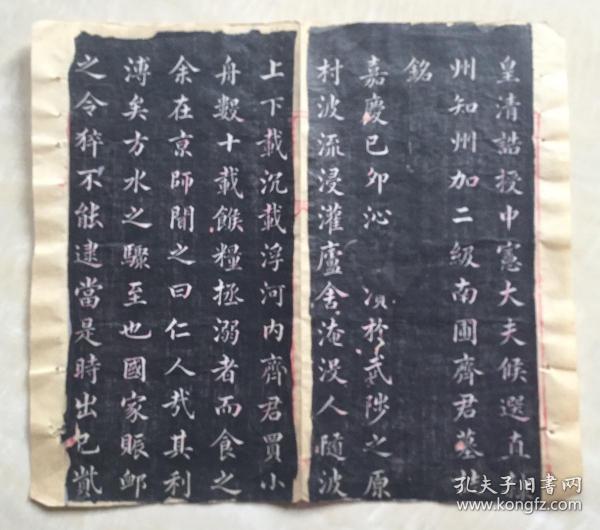 皇清誥授中憲大夫候選直
州知州加二級南圃齊君墓
銘
嘉慶己卯沁 須於武陟之原
村波流浸灌廬舍淹没人随波
上下載沉載浮河内齊君買小
舟数十載餱糧拯溺者而食之
余在京師聞之曰仁人哉其利
溥矣方水之驟至也國家賑郵
之令猝不能逮當是時出己貲
孔夫子旧书网
www.kongfz.com